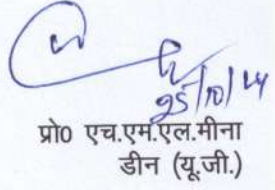 25/10/24
प्रो0 एच.एम.एल.मीना
डीन (यू.जी.)